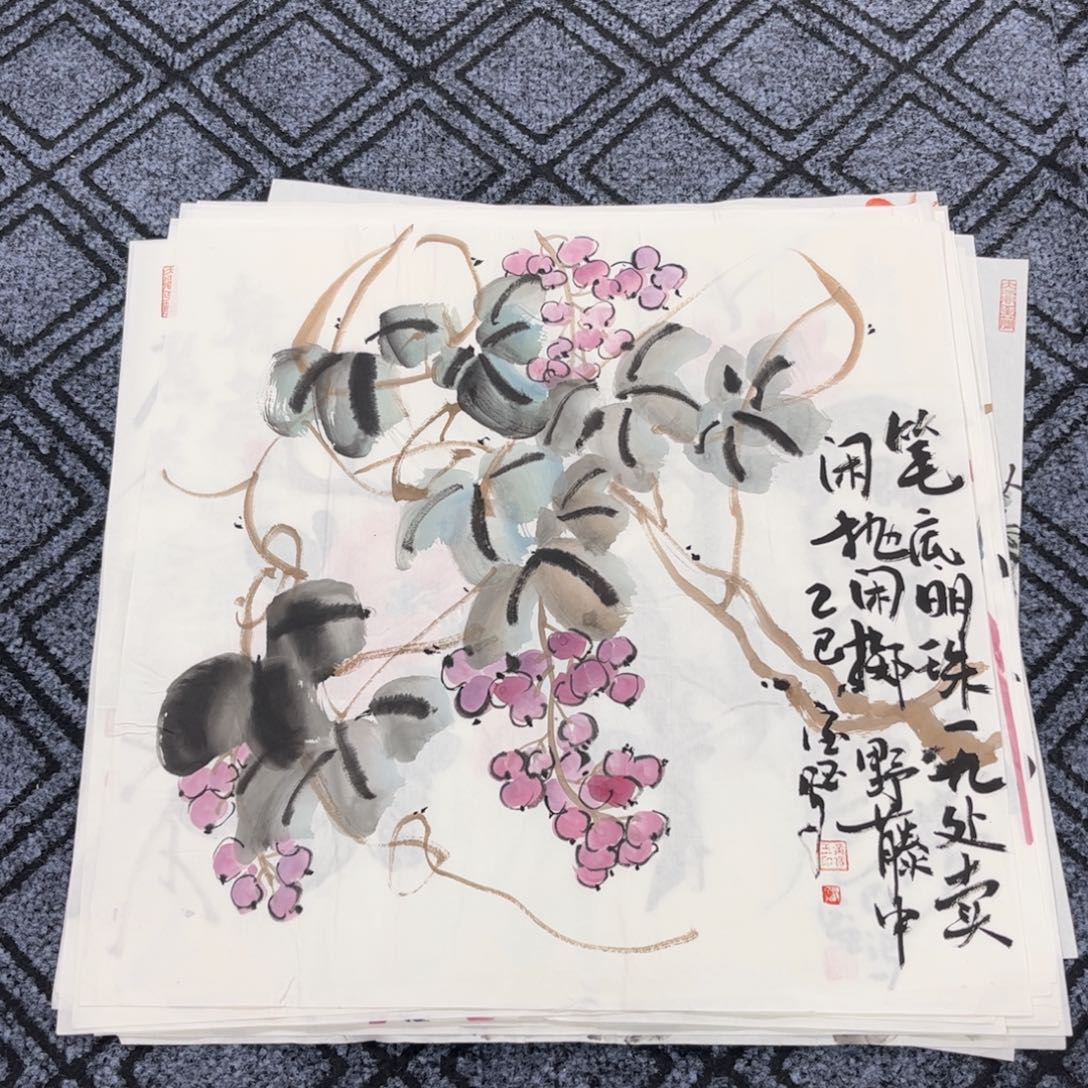 笔底明珠无处卖
闲抛闲掷野藤中
乙巳